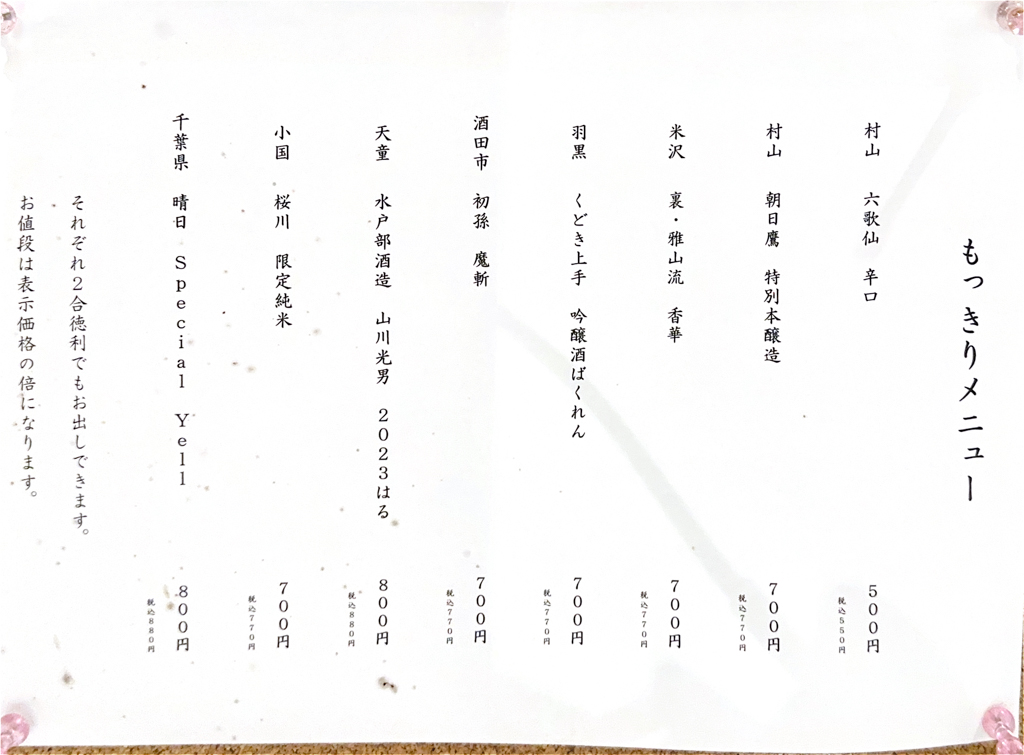 もっきりメニュー
村山 六歌仙 辛口 500円
税込550円
村山 朝日鷹 特別本醸造 700円
税込770円
米沢 裏・雅山流 香華 700円
税込770円
羽黒 くどき上手 吟醸酒ばくれん 700円
税込770円
酒田市 初孫 魔斬 700円
税込770円
天童 水戸部酒造 山川光男 2023はる 800円
税込880円
小国 桜川 限定純米 700円
税込770円
千葉県 晴日 Special Yell 800円
税込880円
それぞれ2合徳利でもお出しできます。
お値段は表示価格の倍になります。